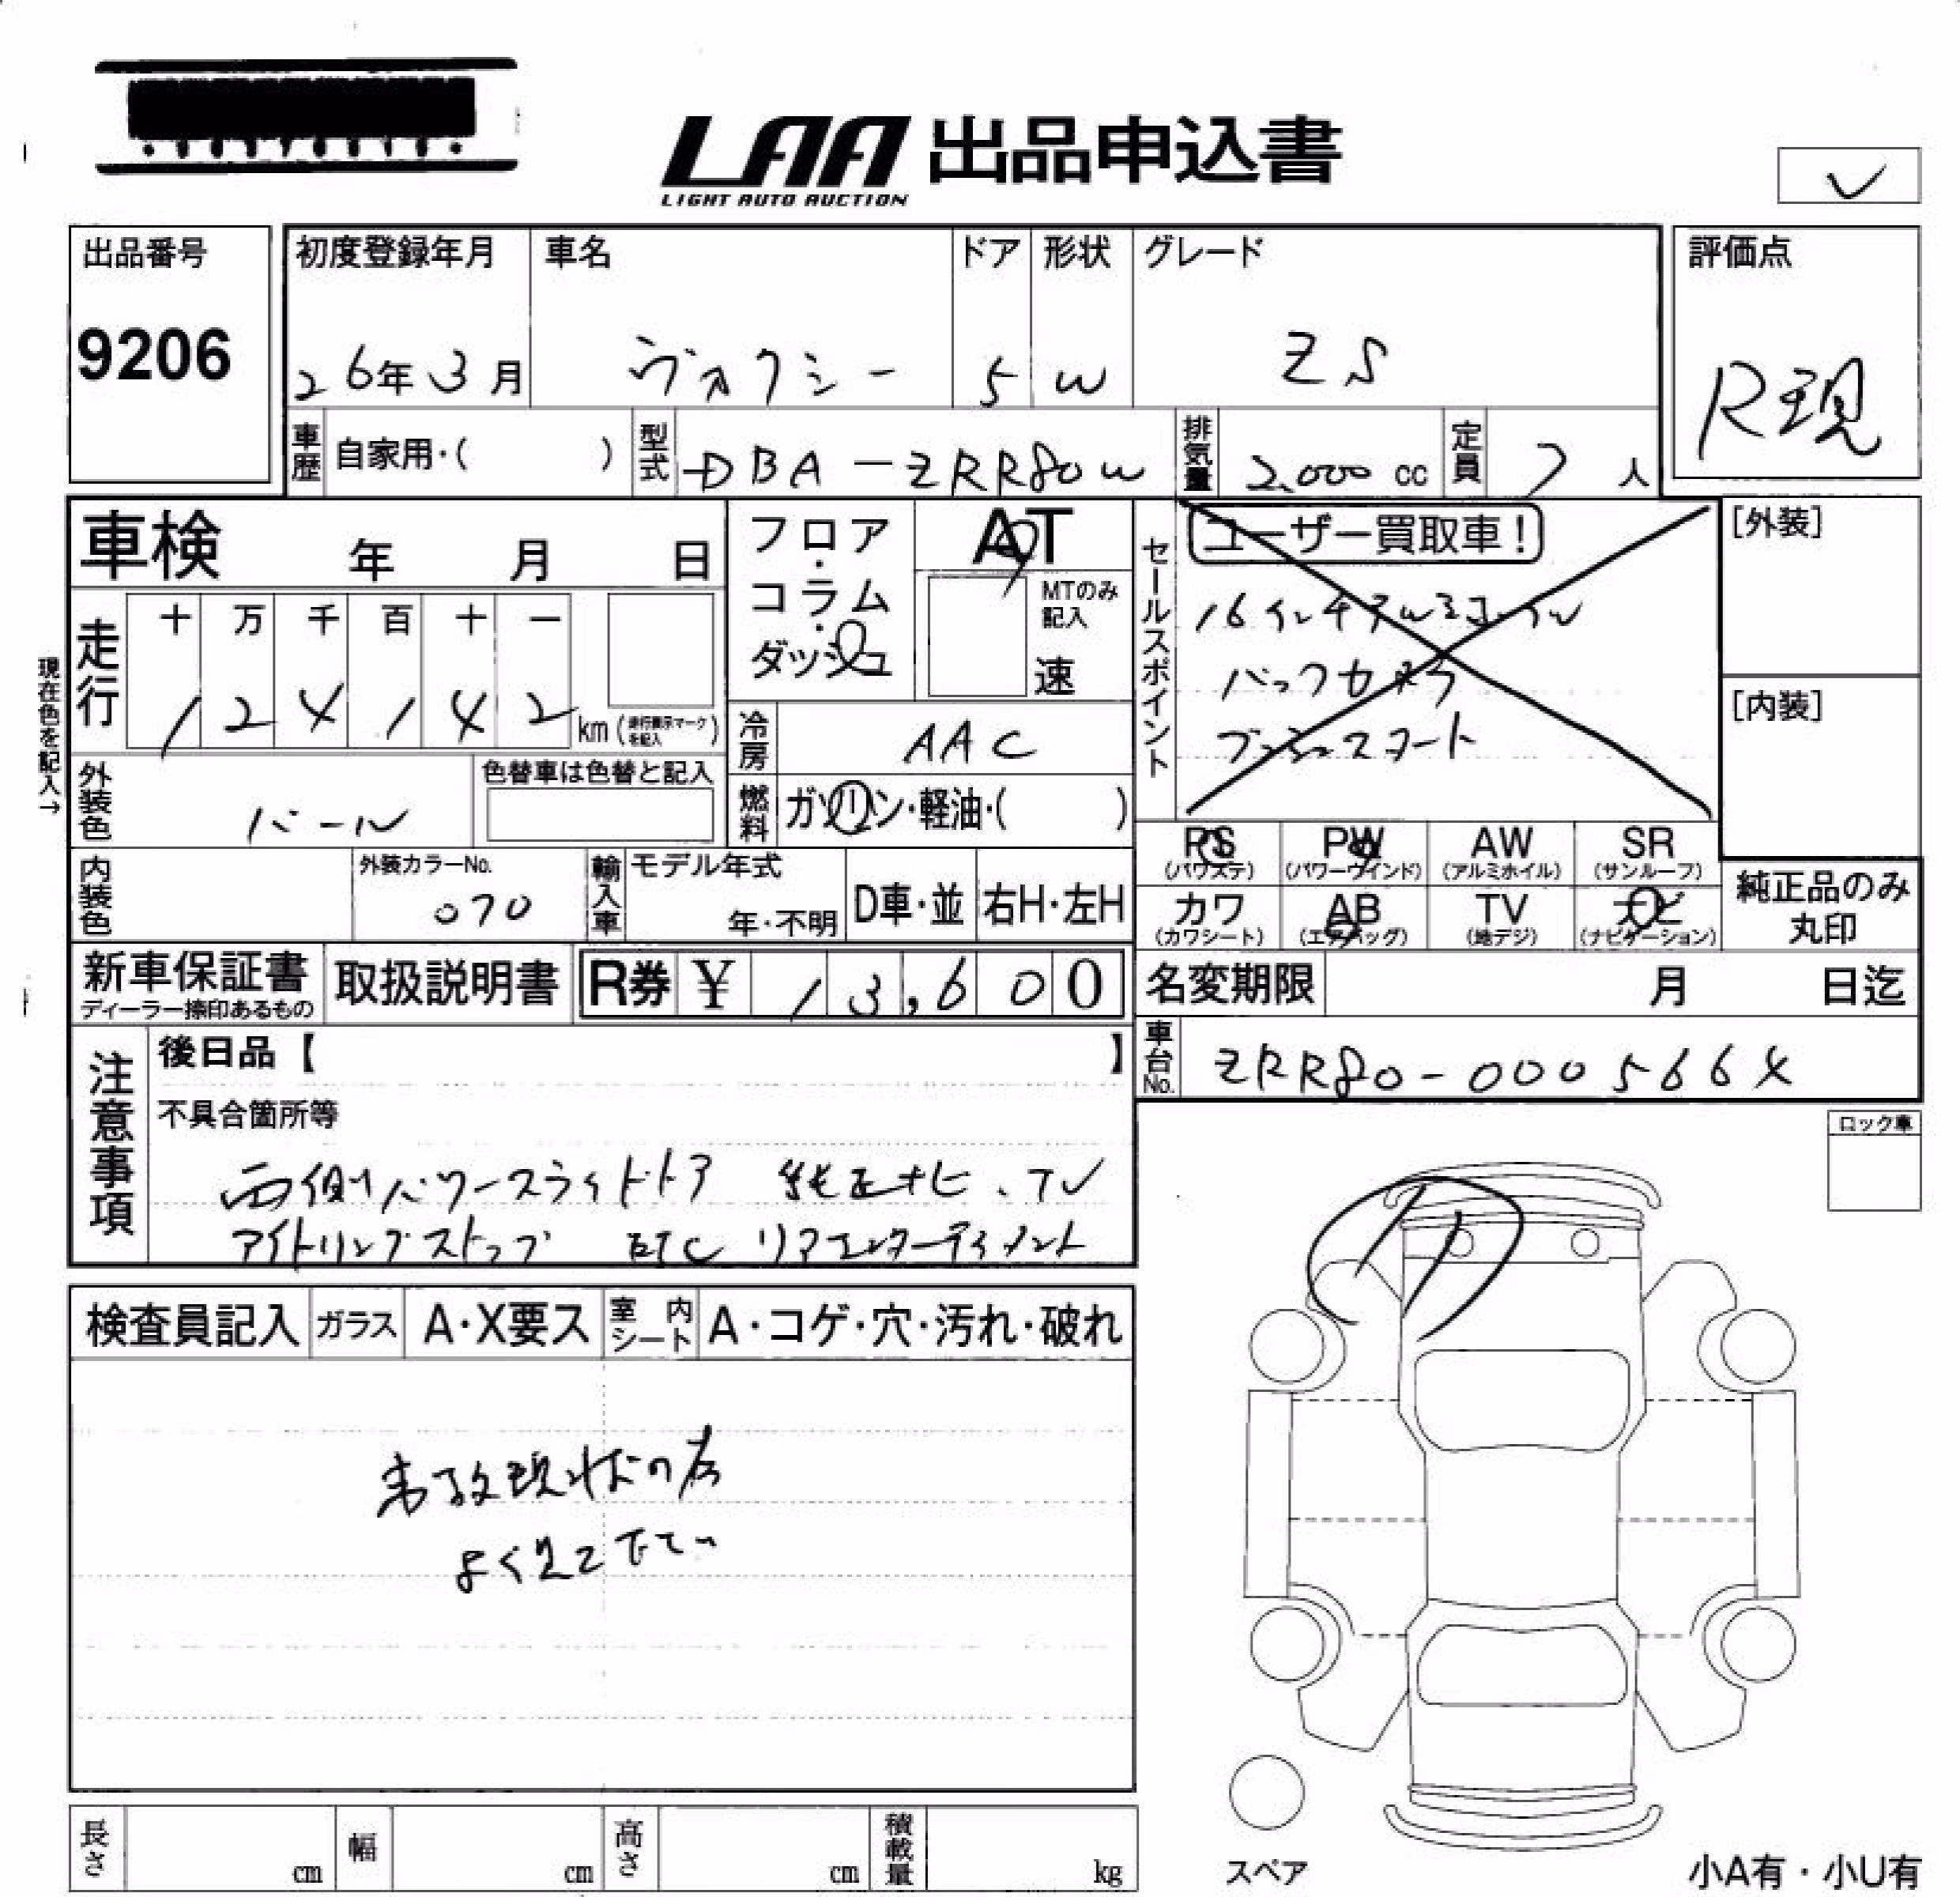 LAA 出品申込書
LIGHT AUTO AUCTION
✓
出品番号
9206
初度登録年月
26年3月
車名
ヴォクシー
ドア
5
形状
W
グレード
ZS
評価点
R現
車歴 自家用・( )
型式 DBA-ZRR80W
排気量 2,000 cc
定員 7人
車検 年 月 日
フロア・コラム・ダッシュ
AT
MTのみ記入
速
セールスポイント
ユーザー買取車!
16インチアルミホイル
バックカメラ
プッシュスタート
[外装]
[内装]
現在色を記入→
走行
十 万 千 百 十 一
1 2 4 1 4 2 km (走行表示マークを記入)
冷房 AAC
外装色 パール
色替車は色替と記入
燃料 ガソリン・軽油・( )
PS (パワステ)
PW (パワーウインド)
AW (アルミホイル)
SR (サンルーフ)
カワ (カワシート)
AB (エアバッグ)
TV (地デジ)
ナビ (ナビゲーション)
純正品のみ丸印
内装色
外装カラーNo.
070
輸入車
モデル年式
年・不明
D車・並
右H・左H
新車保証書
ディーラー捺印あるもの
取扱説明書
R券 ¥ 13,600
名変期限 月 日迄
車台No. ZRR80-0005664
注意事項
後日品【 】
不具合箇所等
両側パワースライドドア 純正ナビ、TV
アイドリングストップ ETC リアエンターテイメント
ロック車
検査員記入
ガラス A・X要ス
室内シート A・コゲ・穴・汚れ・破れ
事故現状の為
よく見て下さい
長さ cm
幅 cm
高さ cm
積載量 kg
スペア
小A有・小U有